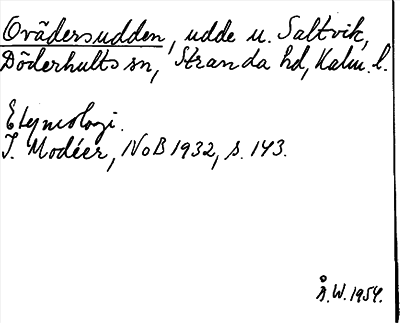 Ovädersudden, udde u. Saltvik,
Döderhults sn, Stranda hd, Kalm. l.
Etymologi.
I. Modéer, NoB 1932, s. 143.
Å.W. 1954.